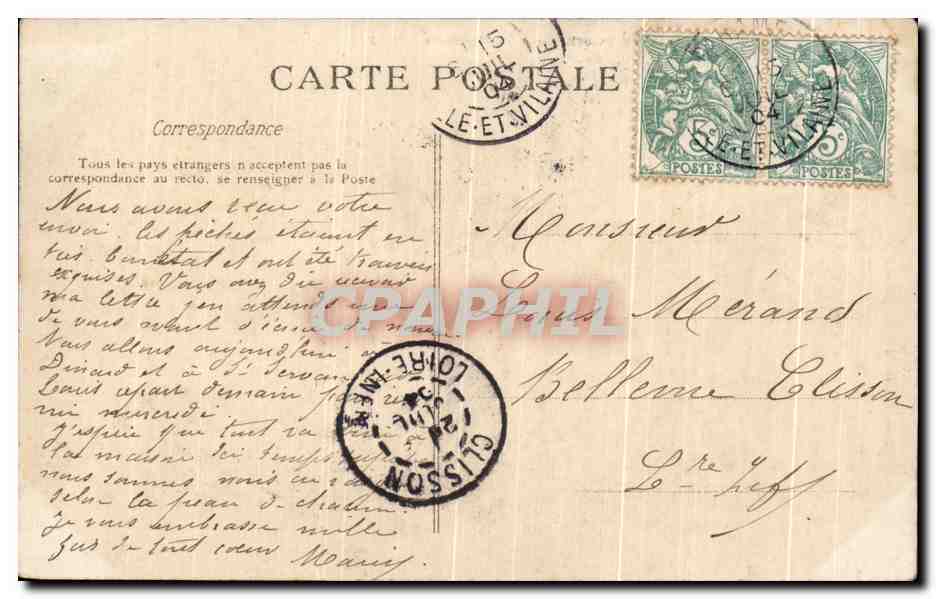 CARTE POSTALE
Correspondance
Tous les pays etrangers n acceptent pas la
correspondance au recto, se renseigner à la Poste
Nous avons reçu votre
envoi. Les pêches étaient en
très bon état et ont été trouvées
exquises. Vous avez dû recevoir
ma lettre j'en attends une
de vous avant d'écrire de nouveau
Nous allons aujourd'hui à
Dinard et à St Servan
Louis repart demain
mercredi.
J'espère que tout va
la maison ici temps
nous sommes
selon la peau de
Je vous embrasse mille
fois de tout coeur
Marie
Monsieur
Louis Mérand
Bellevue Clisson
Lre Inf
15
JUIL
04
LE-ET-VILAINE
5
04
LE-ET-VILAINE
5c
POSTES
5c
POSTES
CLISSON
24
JUIL
04
LOIRE-INFRE
CPAPHIL